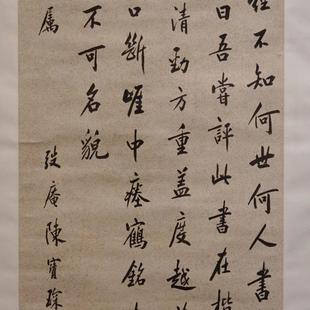 經不知何世何人書
曰吾嘗評此書在楷
清勁方重蓋度越
口斷崖中瘞鶴銘
不可名貌
屬
弢庵陳寶琛